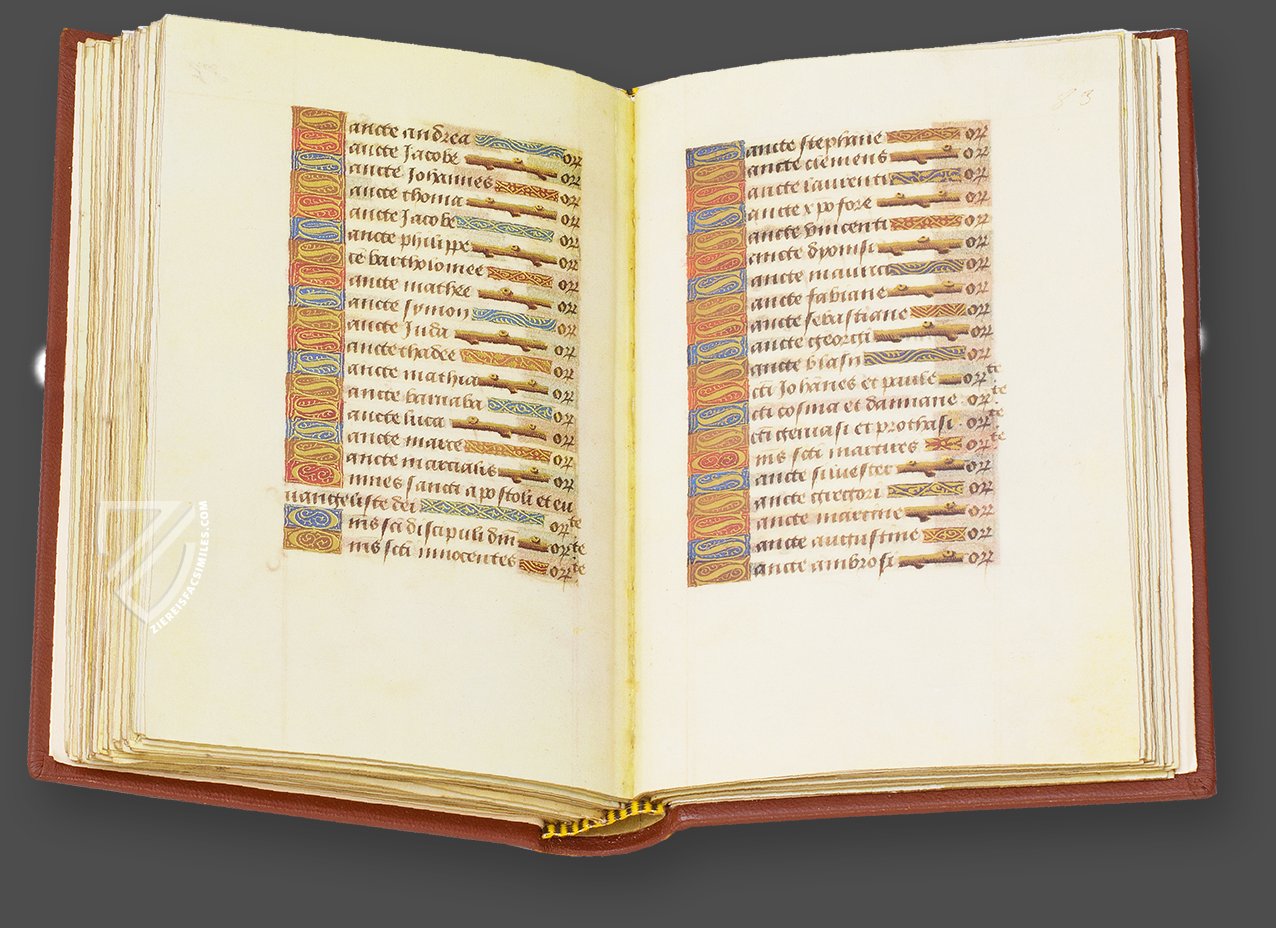 Sancte andrea or
Sancte Jacobe or
Sancte Johannes or
Sancte thoma or
Sancte Jacobe or
Sancte philippe or
Sc̄te bartholomee or
Sancte mathee or
Sancte symon or
Sancte Juda or
Sancte thadee or
Sancte mathia or
Sancte barnaba or
Sancte luca or
Sancte marce or
Sancte marcialis or
Omnes sancti apostoli et eu
uangeliste dei orte
Om̄s sc̄i discipuli dn̄i orte
Om̄s sc̄ti innocentes orte
83
Sancte stephane or
Sancte clemens or
Sancte laurenti or
Sancte xpofore or
Sancte vincenti or
Sancte dyonisi or
Sancte maurici or
Sancte fabiane or
Sancte sebastiane or
Sancte georgi or
Sancte blasii or
Sc̄ti Johānes et paule orte
Sc̄ti cosma et damiane orte
Sc̄ti geruasi et prothasi orte
Om̄s sc̄ti martires orte
Sancte siluester or
Sancte gregori or
Sancte martine or
Sancte augustine or
Sancte ambrosi or
ZIEREISFACSIMILES.COM